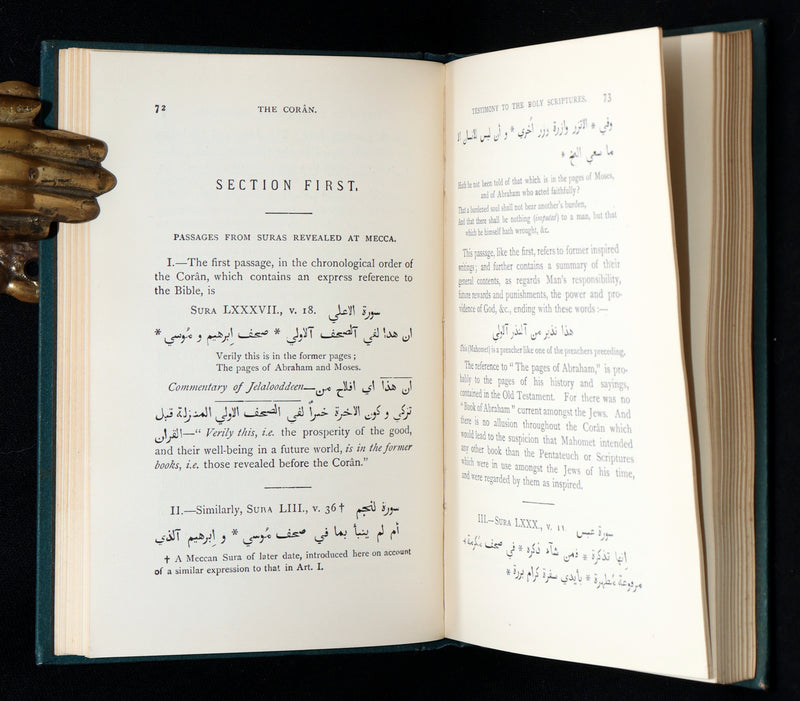 72
THE CORÂN.
SECTION FIRST.
PASSAGES FROM SURAS REVEALED AT MECCA.
I.—The first passage, in the chronological order of
the Corân, which contains an express reference to
the Bible, is
SURA LXXXVII., v. 18. سورة الاعلي
ان هذا لفي آلصحف آلاولي * صحف اِبرهيم و مُوسي *
Verily this is in the former pages;
The pages of Abraham and Moses.
Commentary of Jelalooddeen—ان هذا اي افلاح من
تزكي و كون الاخرة خيراً لفي الصحف الاولي المنزلة قبل
القرآن—“Verily this, i.e. the prosperity of the good,
and their well-being in a future world, is in the former
books, i.e. those revealed before the Corân.”
II.—Similarly, SURA LIII., v. 36† سورة النجم
أم لم ينبأ بما في صحف مُوسي * و اِبرهيم آلذي
† A Meccan Sura of later date, introduced here on account
of a similar expression to that in Art. I.
TESTIMONY TO THE HOLY SCRIPTURES. 73
وفي * الاتزر وازرة وزر أُخري * و أن ليس الانسان الا
ما سعي *
Hath he not been told of that which is in the pages of Moses,
and of Abraham who acted faithfully?
That a burdened soul shall not bear another's burden,
And that there shall be nothing (imputed) to a man, but that
which he himself hath wrought, &c.
This passage, like the first, refers to former inspired
writings; and further contains a summary of their
general contents, as regards Man's responsibility,
future rewards and punishments, the power and pro-
vidence of God, &c., ending with these words:—
هذا نذير من آلنذر آلاولي
This (Mahomet) is a preacher like one of the preachers preceding.
The reference to “The pages of Abraham,” is pro-
bably to the pages of his history and sayings,
contained in the Old Testament. For there was no
“Book of Abraham” current amongst the Jews. And
there is no allusion throughout the Corân which
would lead to the suspicion that Mahomet intended
any other book than the Pentateuch or Scriptures
which were in use amongst the Jews of his time,
and were regarded by them as inspired.
III.—SURA LXXX., v. 11 سورة عبس
اِنها تذكرة * فمن شآء ذكره * في صحف مكرمة *
مرفوعة مُطهرة * بأيدي سفرة كرام بررة *